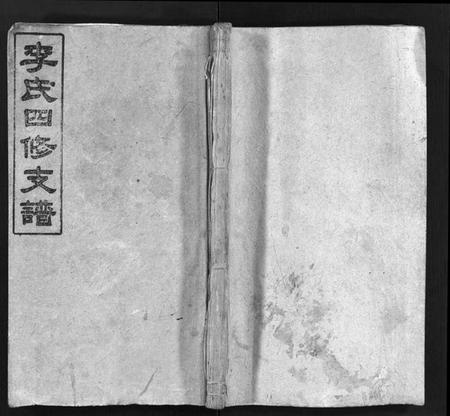 李氏四修支譜